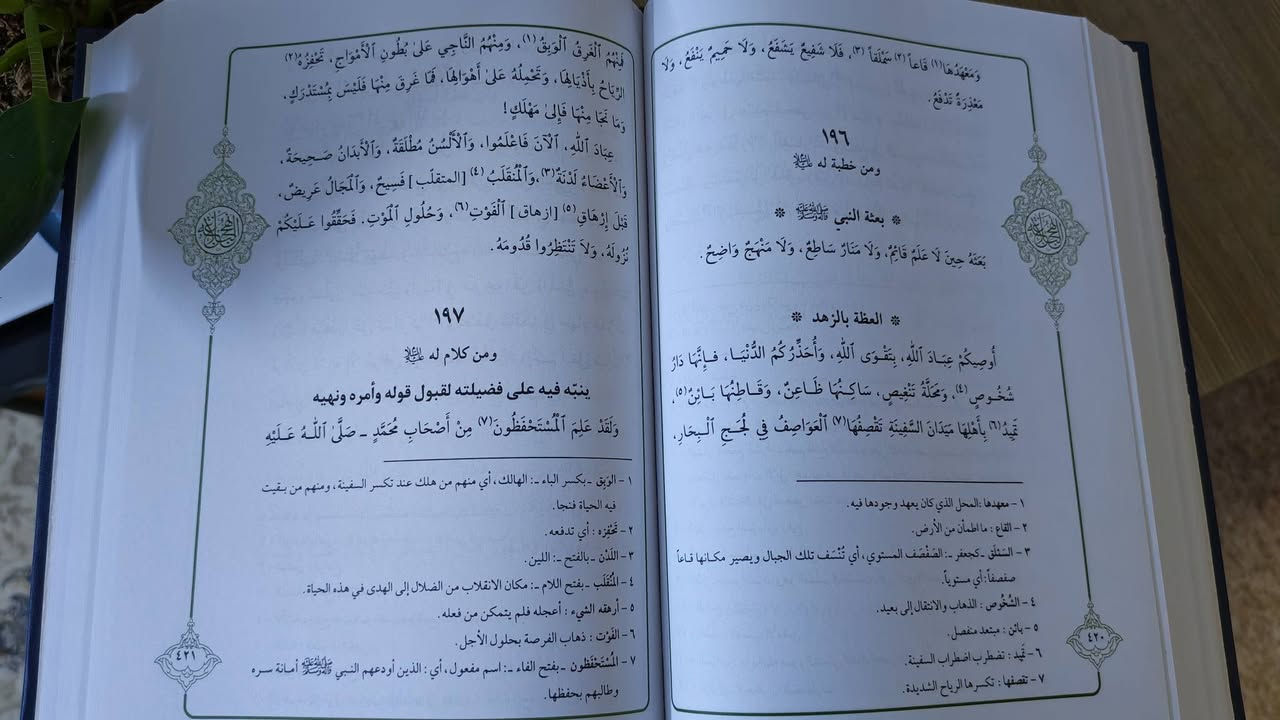 وَمَعْهَدُهَا(١) قَاعاً(٢) سَمْلَقاً(٣)، فَلَا شَفِيعٌ يَشْفَعُ، وَلَا حَمِيمٌ يَنْفَعُ، وَلَا
مَعْذِرَةٌ تَدْفَعُ.
١٩٦
ومن خطبة له ﵇
❊ بعثة النبي ﷺ ❊
بَعَثَهُ حِينَ لَا عَلَمٌ قَائِمٌ، وَلَا مَنَارٌ سَاطِعٌ، وَلَا مَنْهَجٌ وَاضِحٌ.
❊ العظة بالزهد ❊
أُوصِيكُمْ عِبَادَ اللهِ، بِتَقْوَى اللهِ، وَأُحَذِّرُكُمُ الدُّنْيَا، فَإِنَّهَا دَارُ
شُخُوصٍ(٤)، وَمَحَلَّةُ تَنْغِيصٍ، سَاكِنُهَا ظَاعِنٌ، وَقَاطِنُهَا بَائِنٌ(٥)،
تَمِيدُ(٦) بِأَهْلِهَا مَيَدَانَ السَّفِينَةِ تَقْصِفُهَا(٧) ٱلْعَوَاصِفُ فِي لُجَجِ ٱلْبِحَارِ،
١ – معهدها : المحل الذي كان يعهد وجودها فيه.
٢ – القاع : ما اطمأن من الأرض.
٣ – السَمْلَق ـ كجعفر ـ: الصَفْصَف المستوي، أي تُنْسَف تلك الجبال ويصير مكانها قاعاً
صفصفاً: أي مستوياً.
٤ – الشُخُوص : الذهاب والانتقال إلى بعيد.
٥ – بائن : مبتعد منفصل.
٦ – تَمِيد : تضطرب اضطراب السفينة.
٧ – تقصفها : تكسرها الرياح الشديدة.
٤٢٠
فَمِنْهُمُ ٱلْغَرِقُ ٱلْوَبِقُ(١)، وَمِنْهُمُ النَّاجِي عَلىٰ بُطُونِ ٱلْأَمْوَاجِ، تَحْفِزُهُ(٢)
الرِّيَاحُ بِأَذْيَالِهَا، وَتَحْمِلُهُ عَلىٰ أَهْوَالِهَا، فَمَا غَرِقَ مِنْهَا فَلَيْسَ بِمُسْتَدْرَكٍ،
وَمَا نَجَا مِنْهَا فَإِلىٰ مَهْلَكٍ!
عِبَادَ اللهِ، ٱلْآنَ فَاعْلَمُوا، وَٱلْأَلْسُنُ مُطْلَقَةٌ، وَٱلْأَبْدَانُ صَحِيحَةٌ،
وَٱلْأَعْضَاءُ لَدْنَةٌ(٣)، وَٱلْمُنْقَلَبُ(٤) [المتقلّب] فَسِيحٌ، وَٱلْمَجَالُ عَرِيضٌ،
قَبْلَ إِرْهَاقِ(٥) [ازهاق] ٱلْفَوْتِ(٦)، وَحُلُولِ ٱلْمَوْتِ. فَحَقِّقُوا عَلَيْكُمْ
نُزُولَهُ، وَلَا تَنْتَظِرُوا قُدُومَهُ.
١٩٧
ومن كلام له ﵇
ينبّه فيه على فضيلته لقبول قوله وأمره ونهيه
وَلَقَدْ عَلِمَ ٱلْمُسْتَحْفَظُونَ(٧) مِنْ أَصْحَابِ مُحَمَّدٍ ـ صَلَّى اللهُ عَلَيْهِ
١ – الوَبِق ـ بكسر الباء ـ: الهالك، أي منهم من هلك عند تكسر السفينة، ومنهم من بقيت
فيه الحياة فنجا.
٢ – تَحْفِزه : أي تدفعه.
٣ – اللَدْن ـ بالفتح ـ: اللين.
٤ – المُنْقَلَب ـ بفتح اللام ـ: مكان الانقلاب من الضلال إلى الهدى في هذه الحياة.
٥ – أرهقه الشيء : أعجله فلم يتمكن من فعله.
٦ – الفَوْت : ذهاب الفرصة بحلول الأجل.
٧ – المُسْتَحْفَظون ـ بفتح الفاء ـ: اسم مفعول، أي : الذين أودعهم النبي ﷺ أمانة سره
وطالبهم بحفظها.
٤٢١